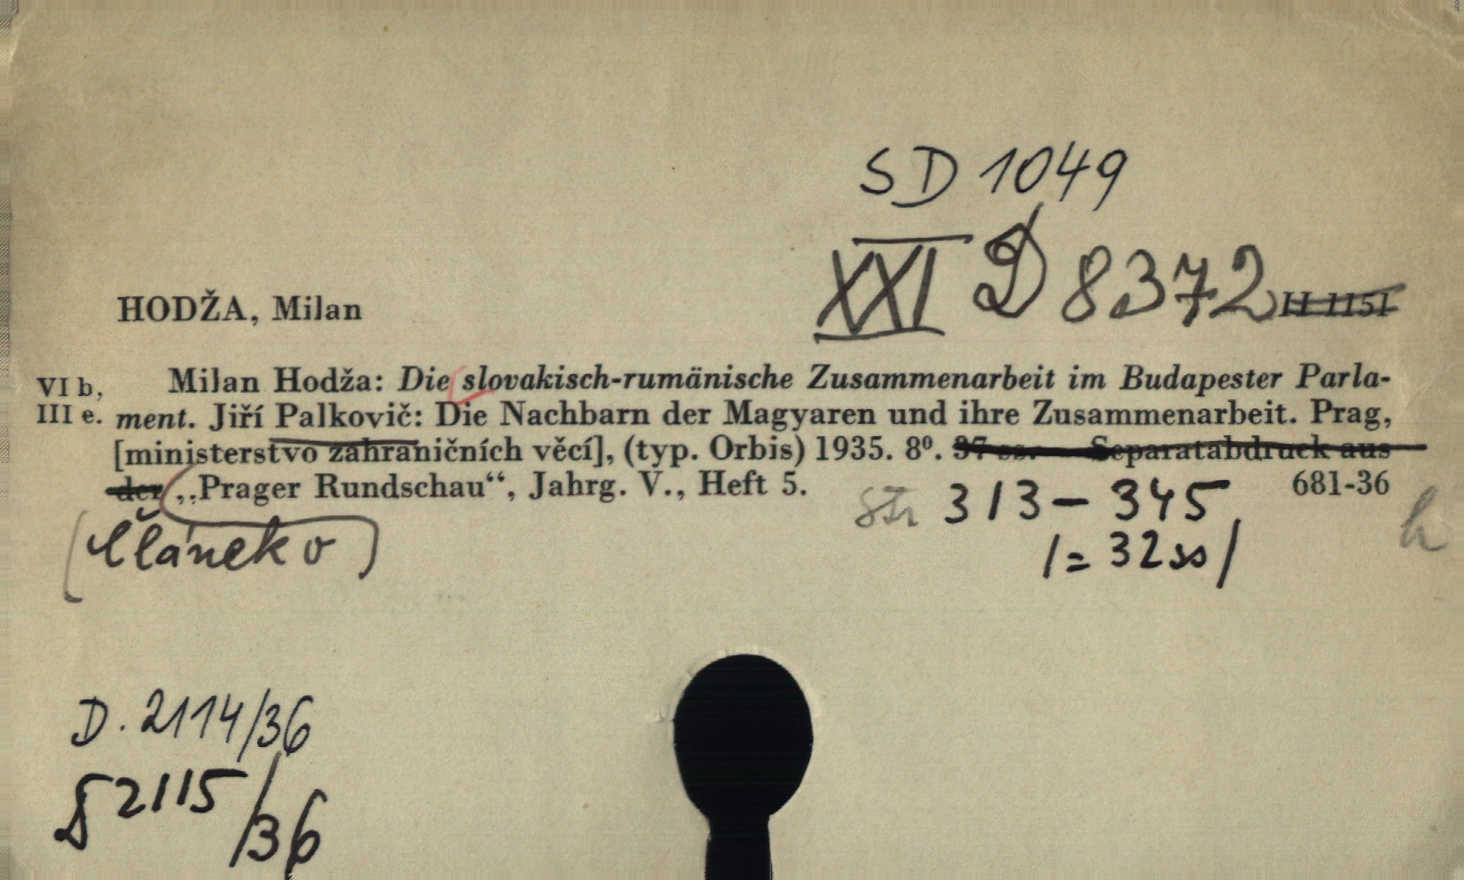 SD 1049
XXI D 8372 H 1151
HODŽA, Milan
VI b, Milan Hodža: Die slovakisch-rumänische Zusammenarbeit im Budapester Parla-
III e. ment. Jiří Palkovič: Die Nachbarn der Magyaren und ihre Zusammenarbeit. Prag,
[ministerstvo zahraničních věcí], (typ. Orbis) 1935. 8⁰. 37 ss. — Separatabdruck aus
der „Prager Rundschau“, Jahrg. V., Heft 5. 681-36
str 313 - 345 h
(Článek v)
/= 32 ss/
D. 2114/36
§ 2115/36